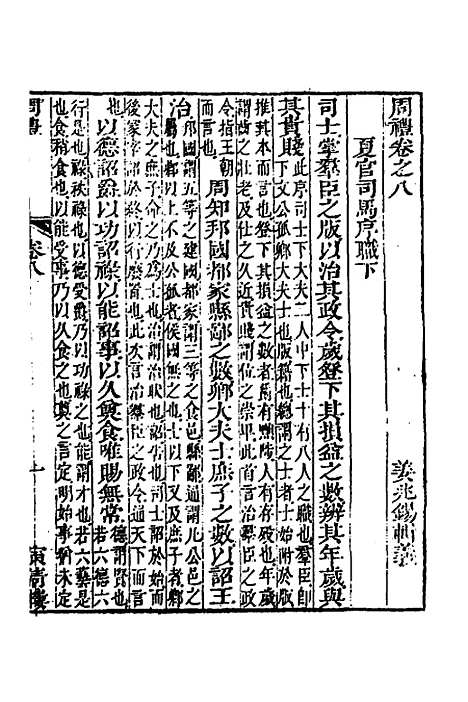 周禮卷之八
姜兆錫輯義
夏官司馬序職下
司士掌羣臣之版以治其政令歲登下其損益之數辨其年歲與
其貴賤此序司士下大夫二人中下士十有八人之職也羣臣卽
下文公孤卿大夫士也版籍也總謂之士者士始附於版
推其本而言也登下其損益之數者有黜陟人有死生也年歲
謂齒之壯老及仕之久近貴賤謂位之崇卑此首言治羣臣之政
令指王朝
而言也周知邦國都家縣鄙之數卿大夫士庶子之數以詔王
治邦國謂五等之建國都家謂三等之食邑縣鄙通謂凡公邑之
屬也卿以上不及公孤者侯國無之也士以下又及庶子者卿
大夫之庶子命之乃爲士也治謂治狀也詔告也司士詔於始而
後冢宰詔於終以行廢置也此次言治羣臣之政令通天下而言
也以德詔爵以功詔祿以能詔事以久奠食唯賜無常德謂賢也
若六德六
行是也祿秩祿也以德受爵乃以功祿之也能謂才也若六藝是
也食稍食也以能受事乃以久食之也奠之言定明始事猶未定
周禮
卷八
一
寅清樓